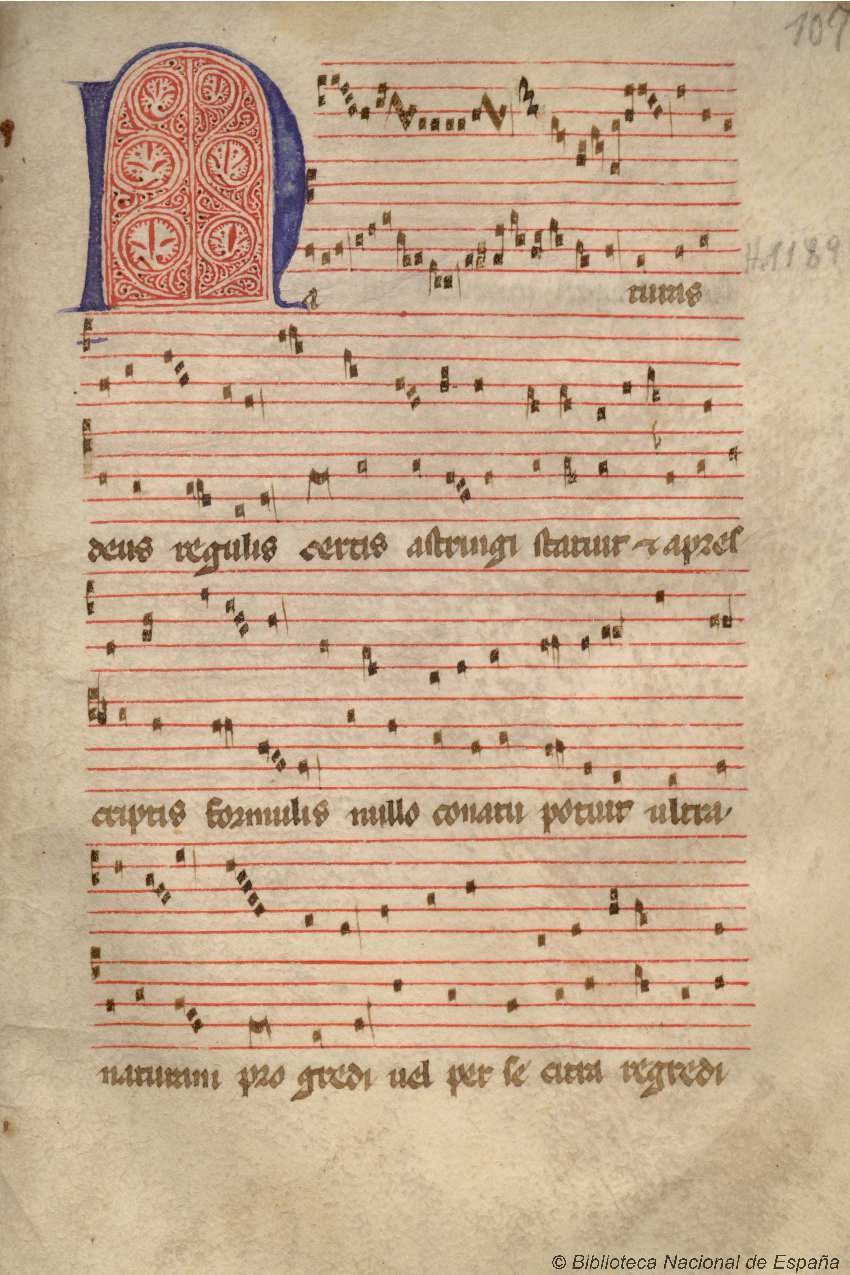 107
H.1189
Na turas
deus regulis certis astringi statuit & apres
criptis formulis nullo conatu potuit ultra
naturam pro gredi uel per se citra regredi
© Biblioteca Nacional de España